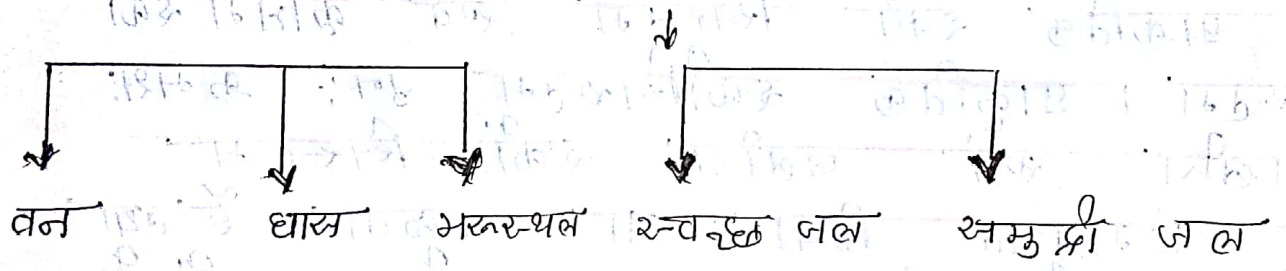 वन घास मरुस्थल स्वच्छ जल समुद्री जल